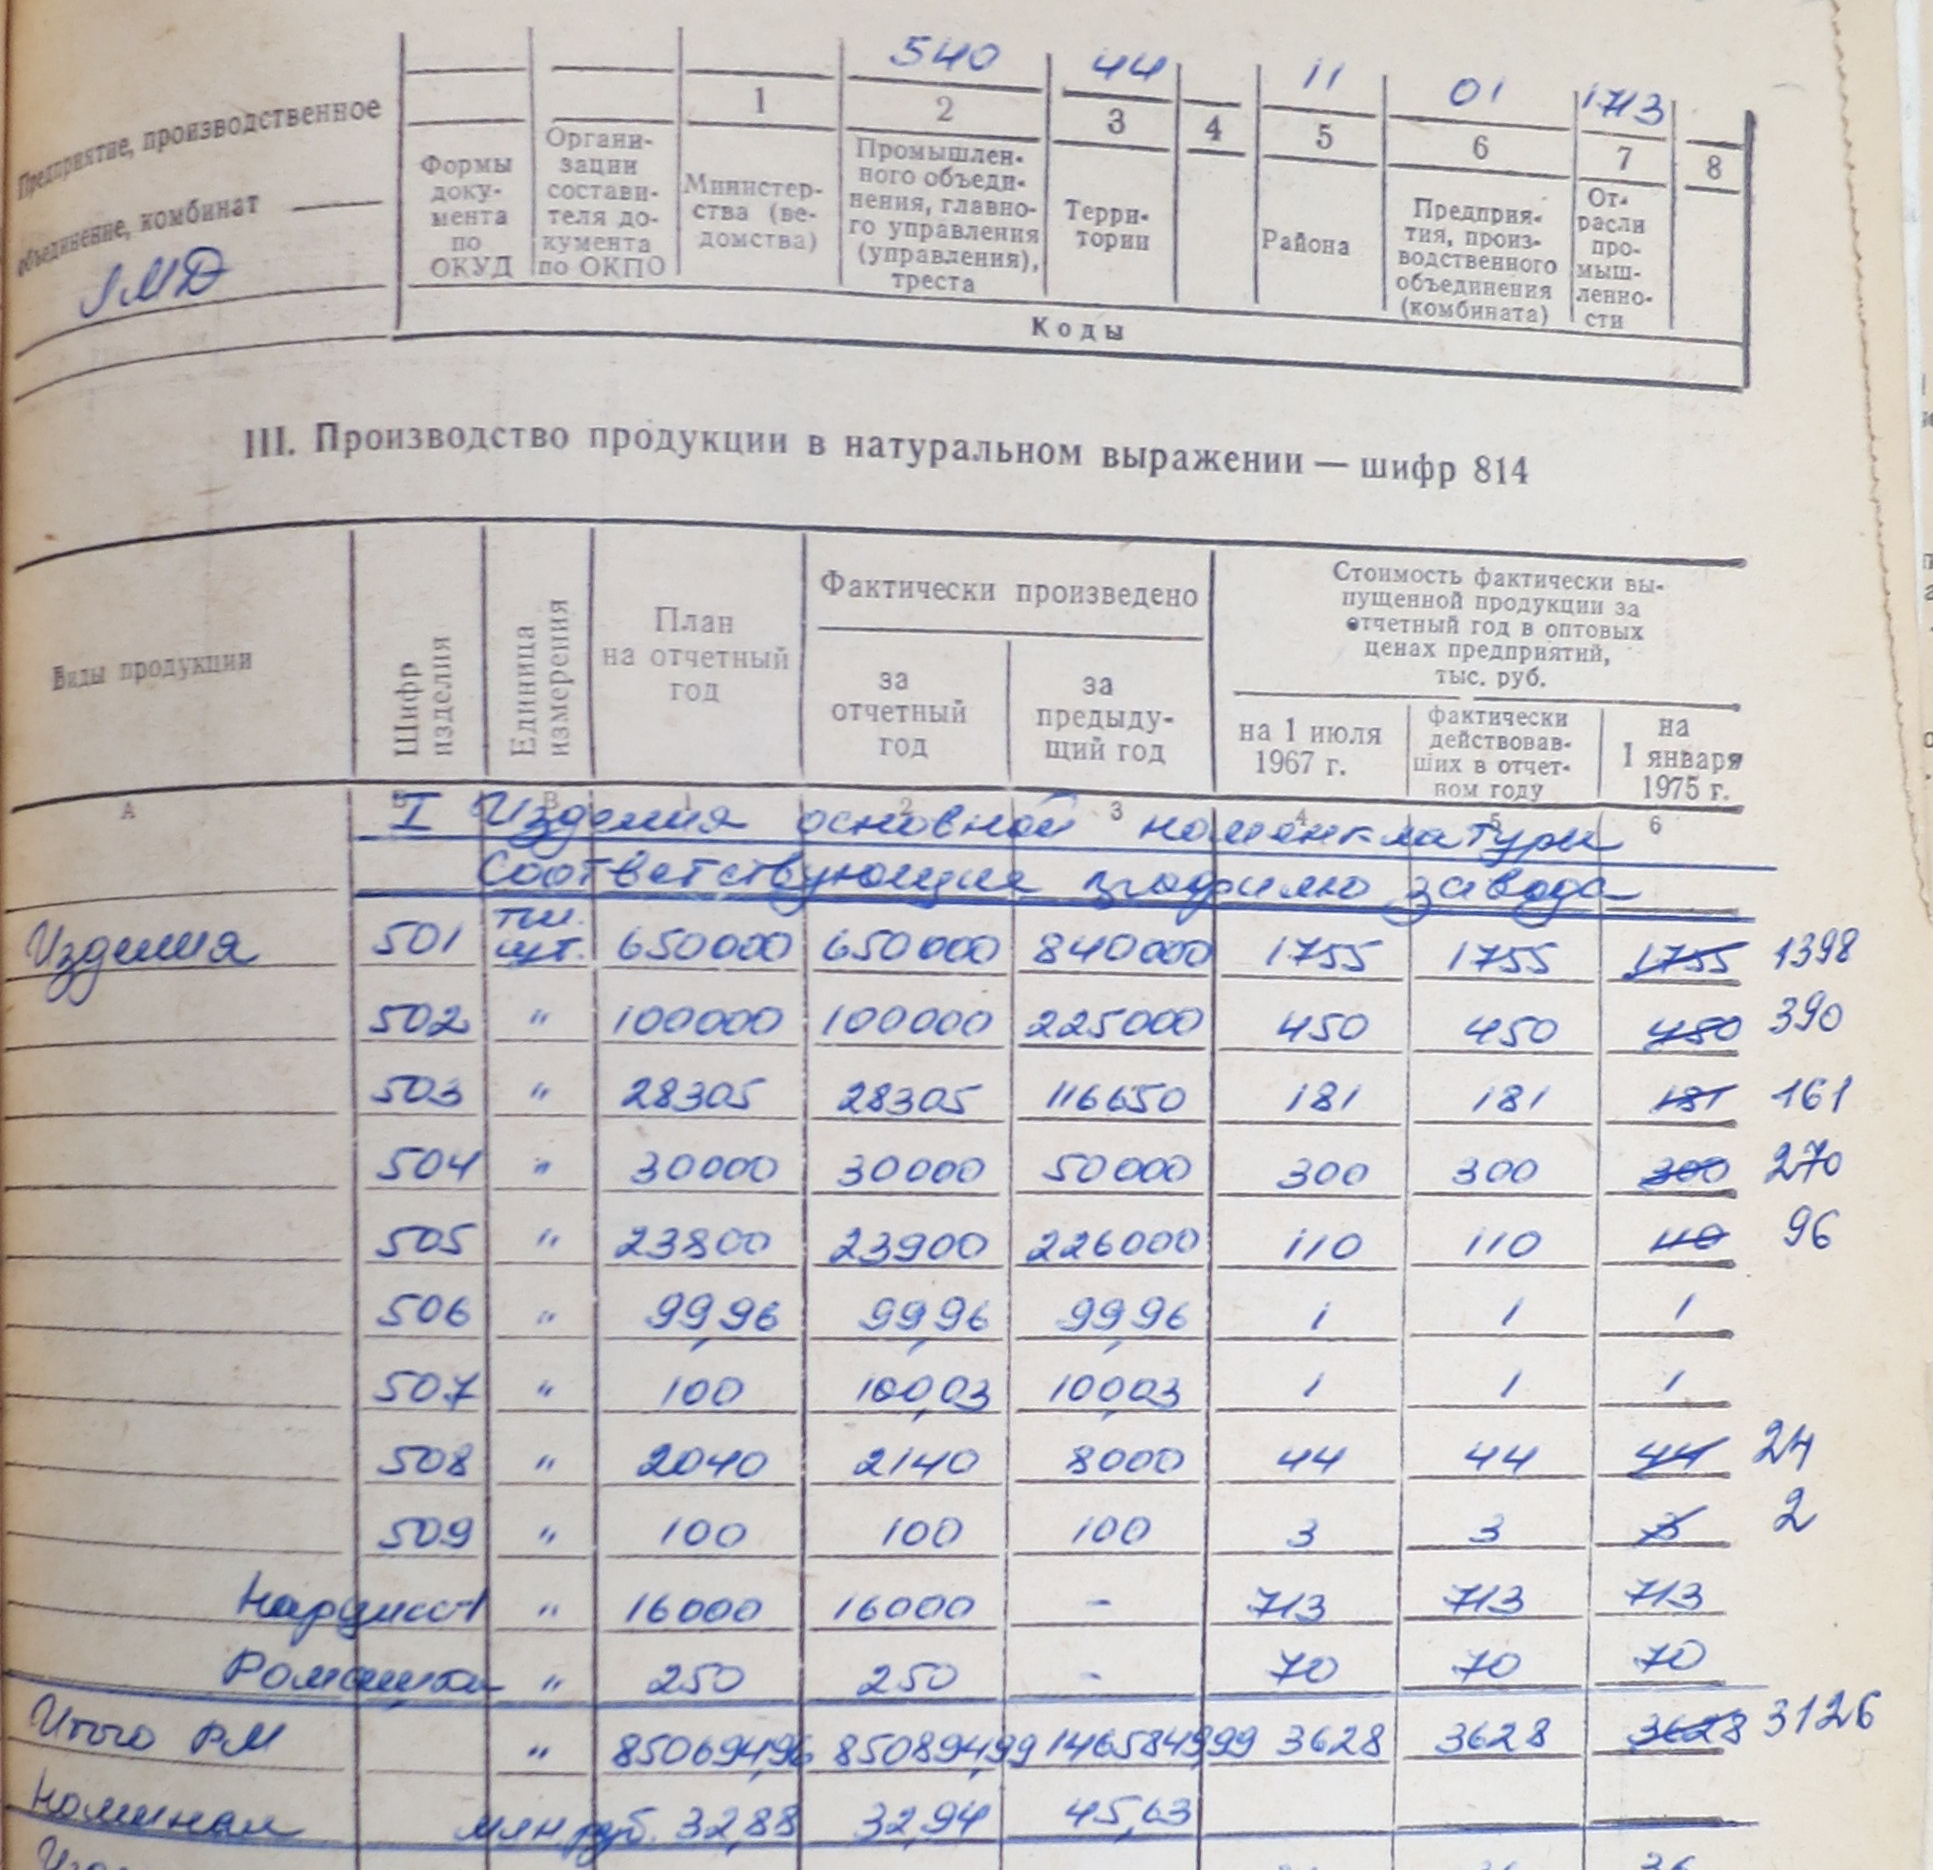 540 44 11 01 1713
1 2 3 4 5 6 7 8
Предприятие, производственное
объединение, комбинат
ЛМД
Формы доку- мента по ОКУД
Органи- зации состави- теля до- кумента по ОКПО
Министер- ства (ве- домства)
Промышлен- ного объеди- нения, главно- го управления (управления), треста
Терри- тории
Района
Предприя- тия, произ- водственного объединения (комбината)
От- расли про- мыш- ленно- сти
Коды
III. Производство продукции в натуральном выражении — шифр 814
Виды продукции
Шифр изделия
Единица измерения
План на отчетный год
Фактически произведено
за отчетный год
за предыду- щий год
Стоимость фактически вы-
пущенной продукции за
отчетный год в оптовых
ценах предприятий,
тыс. руб.
на 1 июля 1967 г.
фактически действовав- ших в отчет- ном году
на 1 января 1975 г.
А Б В 1 2 3 4 5 6
I Изделия основной номенклатуры
Соответствующие профилю завода
Изделия 501 тыс. шт. 650000 650000 840000 1755 1755 1755 1398
502 " 100000 100000 225000 450 450 450 390
503 " 28305 28305 116650 181 181 181 161
504 " 30000 30000 50000 300 300 300 270
505 " 23800 23900 226000 110 110 110 96
506 " 99,96 99,96 99,96 1 1 1
507 " 100 100,03 100,03 1 1 1
508 " 2040 2140 8000 44 44 44 24
509 " 100 100 100 3 3 3 2
Нарцисс-1 " 16000 16000 - 713 713 713
Ромашка " 250 250 - 70 70 70
Итого РМ " 850694,96 850894,99 1465849,99 3628 3628 3628 3126
Номинал млн руб. 32,88 32,94 45,63